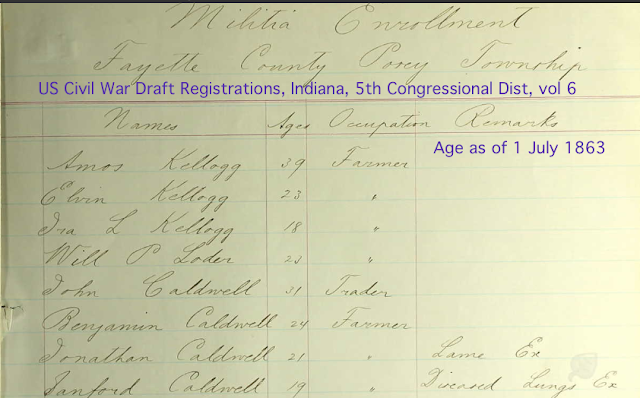 Militia Enrollment
Fayette County Posey Township
US Civil War Draft Registrations, Indiana, 5th Congressional Dist, vol 6
Names Ages Occupation Remarks
Age as of 1 July 1863
Amos Kellogg 39 Farmer
Elvin Kellogg 23 "
Ira L Kellogg 18 "
Will P Loder 23 "
John Caldwell 31 Trader
Benjamin Caldwell 24 Farmer
Jonathan Caldwell 21 " Lame Ex
Sanford Caldwell 19 " Diseased Lungs Ex